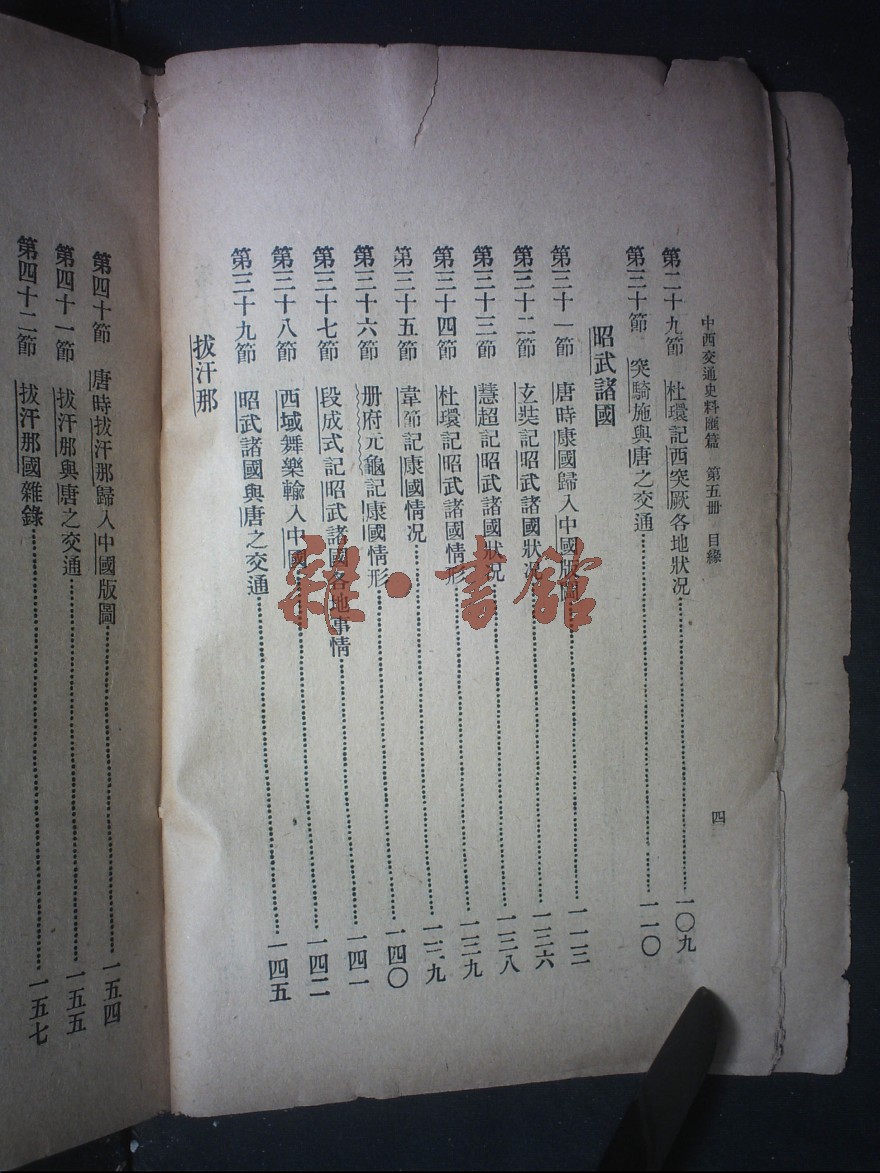 中西交通史料匯篇 第五册 目錄
四
第二十九節 杜環記西突厥各地狀况 一〇九
第三十節 突騎施與唐之交通 一一〇
昭武諸國
第三十一節 唐時康國歸入中國版圖 一一三
第三十二節 玄奘記昭武諸國狀况 一三六
第三十三節 慧超記昭武諸國狀况 一三八
第三十四節 杜環記昭武諸國情形 一三九
第三十五節 韋節記康國情况 一三九
第三十六節 册府元龜記康國情形 一四〇
第三十七節 段成式記昭武諸國各地事情 一四一
第三十八節 西域舞樂輸入中國 一四二
第三十九節 昭武諸國與唐之交通 一四五
拔汗那
第四十節 唐時拔汗那歸入中國版圖 一五四
第四十一節 拔汗那與唐之交通 一五五
第四十二節 拔汗那國雜錄 一五七
雜·書館